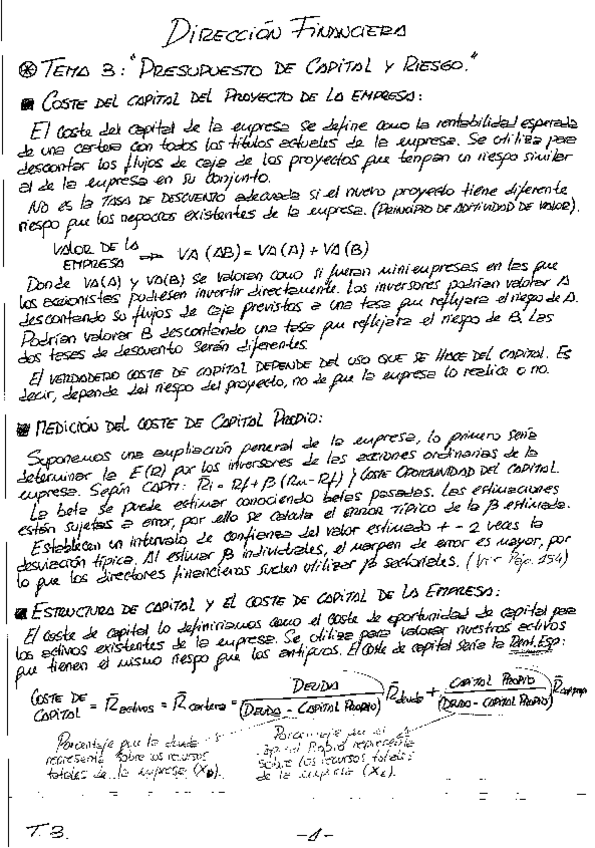 DIRECCIÓN FINANCIERA
⊛ TEMA 3: "PRESUPUESTO DE CAPITAL Y RIESGO."
■ COSTE DEL CAPITAL DEL PROYECTO DE LA EMPRESA:
El coste del capital de la empresa se define como la rentabilidad esperada
de una cartera con todos los títulos actuales de la empresa. Se utiliza para
descontar los flujos de caja de los proyectos que tengan un riesgo similar
al de la empresa en su conjunto.
No es la TASA DE DESCUENTO adecuada si el nuevo proyecto tiene diferente
riesgo que los negocios existentes de la empresa. (PRINCIPIO DE ADITIVIDAD DE VALOR).
VALOR DE LA
EMPRESA ⇒ VA (AB) = VA (A) + VA (B)
Donde VA(A) y VA(B) se valoran como si fueran mini empresas en las que
los accionistas pudiesen invertir directamente. Los inversores podrían valorar A
descontando su flujos de caja previstos a una tasa que reflejara el riesgo de A.
Podrían valorar B descontando una tasa que reflejara el riesgo de B. Las
dos tasas de descuento serán diferentes.
El VERDADERO COSTE DE CAPITAL DEPENDE DEL USO QUE SE HACE DEL CAPITAL. Es
decir, depende del riesgo del proyecto, no de que la empresa lo realice o no.
■ MEDICIÓN DEL COSTE DE CAPITAL PROPIO:
Suponemos una ampliación general de la empresa, lo primero sería
determinar la E(R) por los inversores de las acciones ordinarias de la
empresa. Según CAPM: Ri = Rf + β (Rm - Rf) } COSTE OPORTUNIDAD DEL CAPITAL.
La beta se puede estimar conociendo betas pasadas. Las estimaciones
están sujetas a error, por ello se calcula el ERROR TÍPICO de la β estimada.
Establecen un intervalo de confianza del valor estimado + - 2 veces la
desviación típica. Al estimar β individuales, el margen de error es mayor, por
lo que los directores financieros suelen utilizar β sectoriales. (Ver Pág. 154)
■ ESTRUCTURA DE CAPITAL Y EL COSTE DE CAPITAL DE LA EMPRESA:
El coste de capital lo definiríamos como el coste de oportunidad de capital para
los activos existentes de la empresa. Se utiliza para valorar nuestros activos
que tienen el mismo riesgo que los antiguos. El coste de capital sería la Rent. Esp:
COSTE DE CAPITAL = R̄activos = R̄cartera = DEUDA / (DEUDA - CAPITAL PROPIO) R̄deuda + CAPITAL PROPIO / (DEUDA - CAPITAL PROPIO) R̄
Porcentaje que la deuda
representa sobre los recursos
totales de la empresa (XD).
Porcentaje que el
Capital Propio representa
sobre los recursos totales
de la empresa (XE).
T.3.
-1-